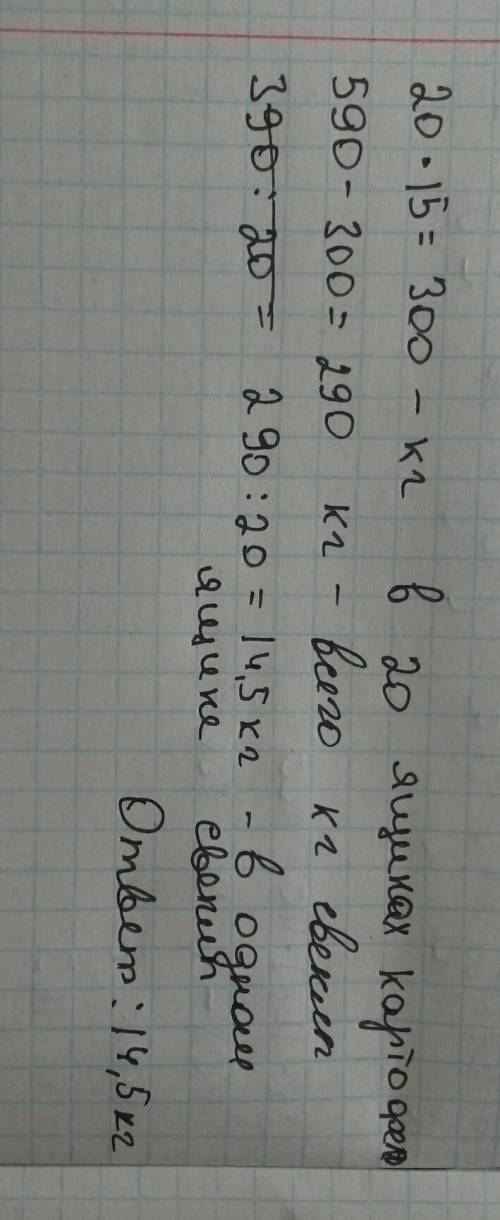 20 · 15 = 300 - кг в 20 ящиках картофеля
590 - 300 = 290 кг - всего кг свеклы
390 : 20 = 290 : 20 = 14,5 кг - в одном
ящике свеклы
Ответ: 14,5 кг